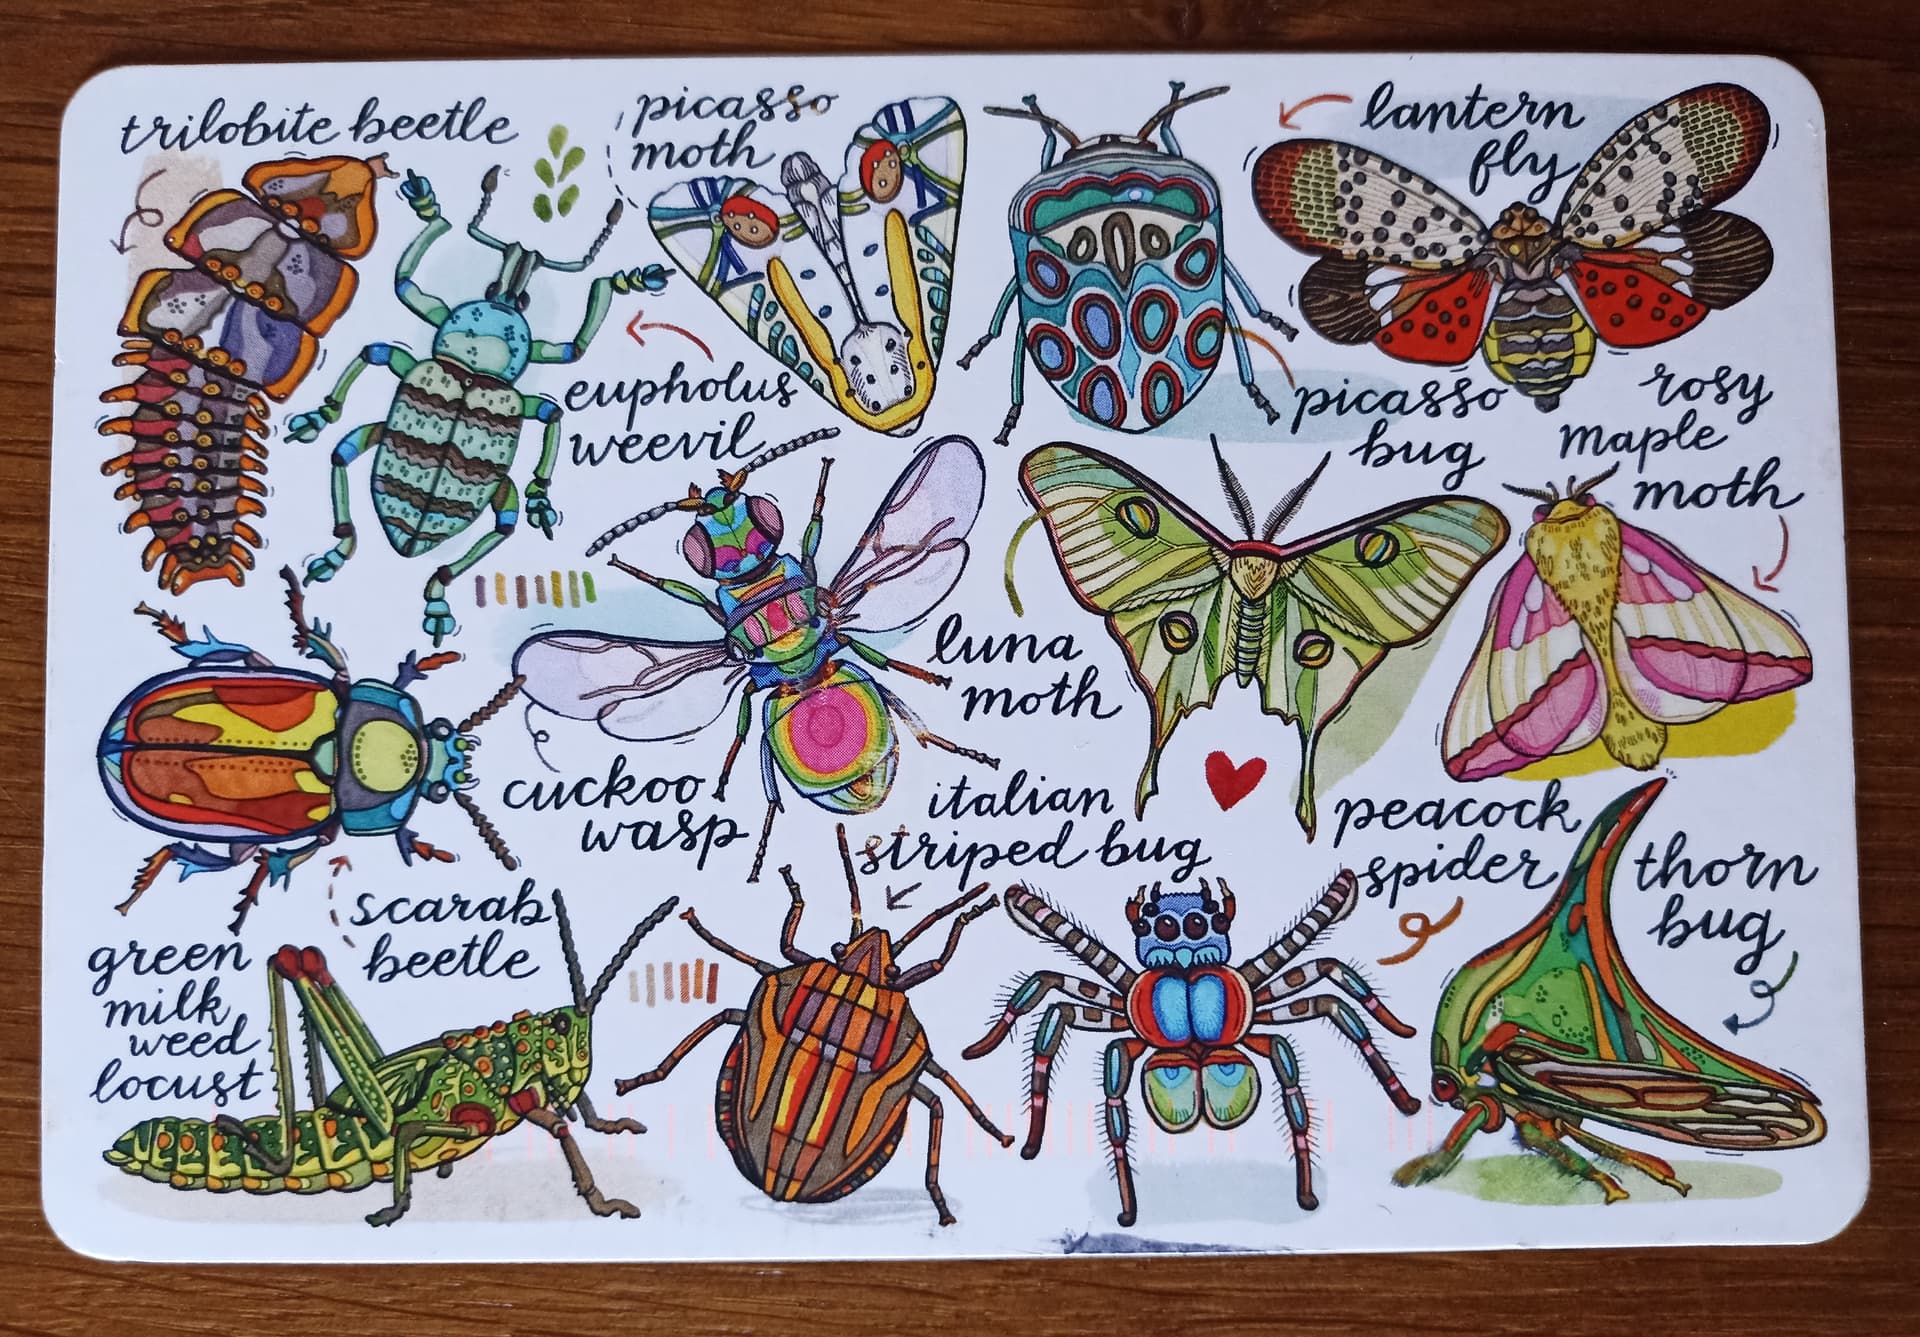 trilobite beetle
picasso
moth
lantern
fly
eupholus
weevil
picasso
bug
rosy
maple
moth
luna
moth
cuckoo
wasp
italian
striped bug
peacock
spider
thorn
bug
scarab
beetle
green
milk
weed
locust